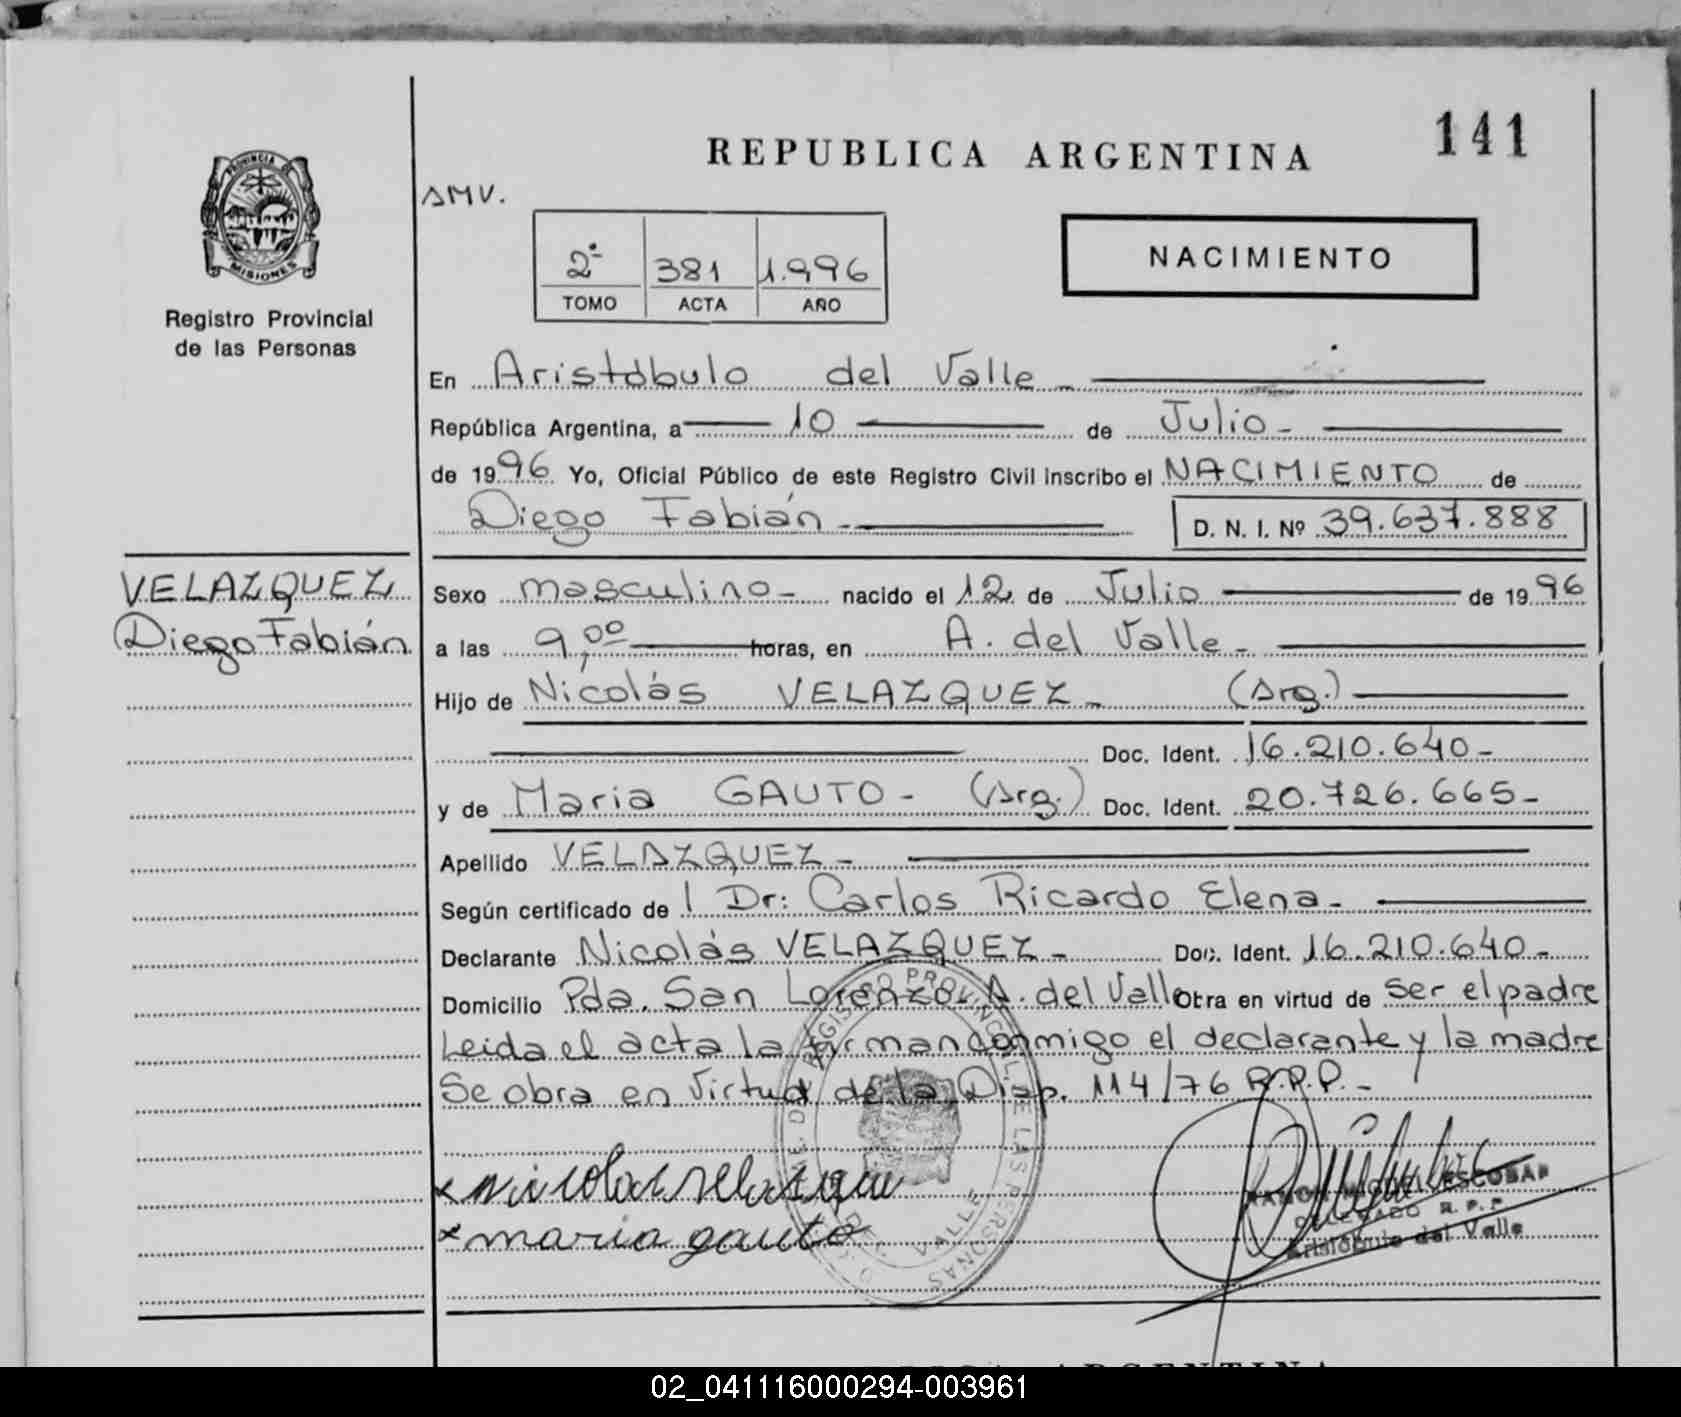 141
REPUBLICA ARGENTINA
PROVINCIA DE
MISIONES
Registro Provincial
de las Personas
SMV.
2º 381 1.996
TOMO ACTA AÑO
NACIMIENTO
En Aristóbulo del Valle -
República Argentina, a 10 de Julio -
de 1996 Yo, Oficial Público de este Registro Civil Inscribo el NACIMIENTO de
Diego Fabián - D. N. I. Nº 39.637.888
VELAZQUEZ
Diego Fabián
Sexo masculino - nacido el 12 de Julio de 1996
a las 9,00 horas, en A. del Valle -
Hijo de Nicolás VELAZQUEZ - (Arg.)
Doc. Ident. 16.210.640 -
y de Maria GAUTO - (Arg.) Doc. Ident. 20.726.665 -
Apellido VELAZQUEZ -
Según certificado de Dr: Carlos Ricardo Elena -
Declarante Nicolás VELAZQUEZ - Doc. Ident. 16.210.640 -
Domicilio Pda. San Lorenzo - A. del Valle Obra en virtud de ser el padre
Leida el acta la firman conmigo el declarante y la madre
Se obra en virtud de la Disp. 114/76 R.P.P. -
REGISTRO PROVINCIAL DE LAS PERSONAS
DEL VALLE
x nicolas velasque
x maria gauto
RAMON MIGUEL ESCOBAR
DELEGADO R. P. P.
Aristóbulo del Valle
REPUBLICA ARGENTINA
02_041116000294-003961